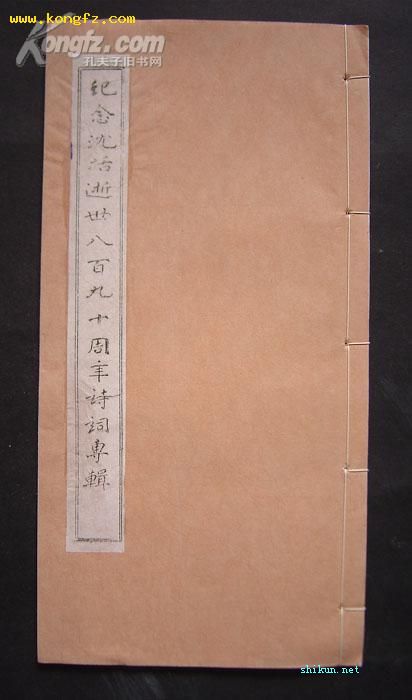 www.kongfz.com
Kongfz.com
孔夫子旧书网
纪念沈括逝世八百九十周年詩詞專輯
shikun.net